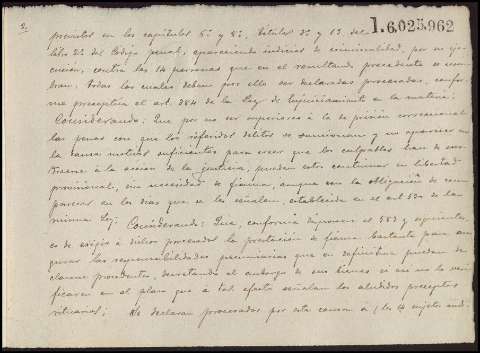 2.
1.6,025,962
previstos en los capítulos 6º y 8º, títulos 3º y 13 del
libro 2º del Código penal, apareciendo indicios de criminalidad, por su eje-
cución, contra las 14 personas que en el resultando precedente se nom-
bran; todas las cuales deben por ello ser declaradas procesadas, confor-
me preceptúa el art. 384 de la Ley de Enjuiciamiento en la materia:
Considerando: Que por no ser superiores á la de prisión correccional
las penas con que los referidos delitos se sancionan y no aparecer en
la causa motivos suficientes para creer que los culpables han de sus-
traerse á la acción de la justicia, pueden estos continuar en libertad
provisional, sin necesidad de fianza, aunque con la obligación de com-
parecer en los días que se les señalan, establecida en el art. 530 de la
misma Ley; Considerando: Que, conforme disponen el 589 y siguientes,
es de exigir á dichos procesados la prestación de fianza bastante para ase-
gurar las responsabilidades pecuniarias que en definitiva puedan de-
clararse procedentes, decretando el embargo de sus bienes si no lo veri-
ficaren en el plazo que á tal efecto señalan los aludidos preceptos
rituarios; Se declaran procesados por esta causa á los 14 sujetos